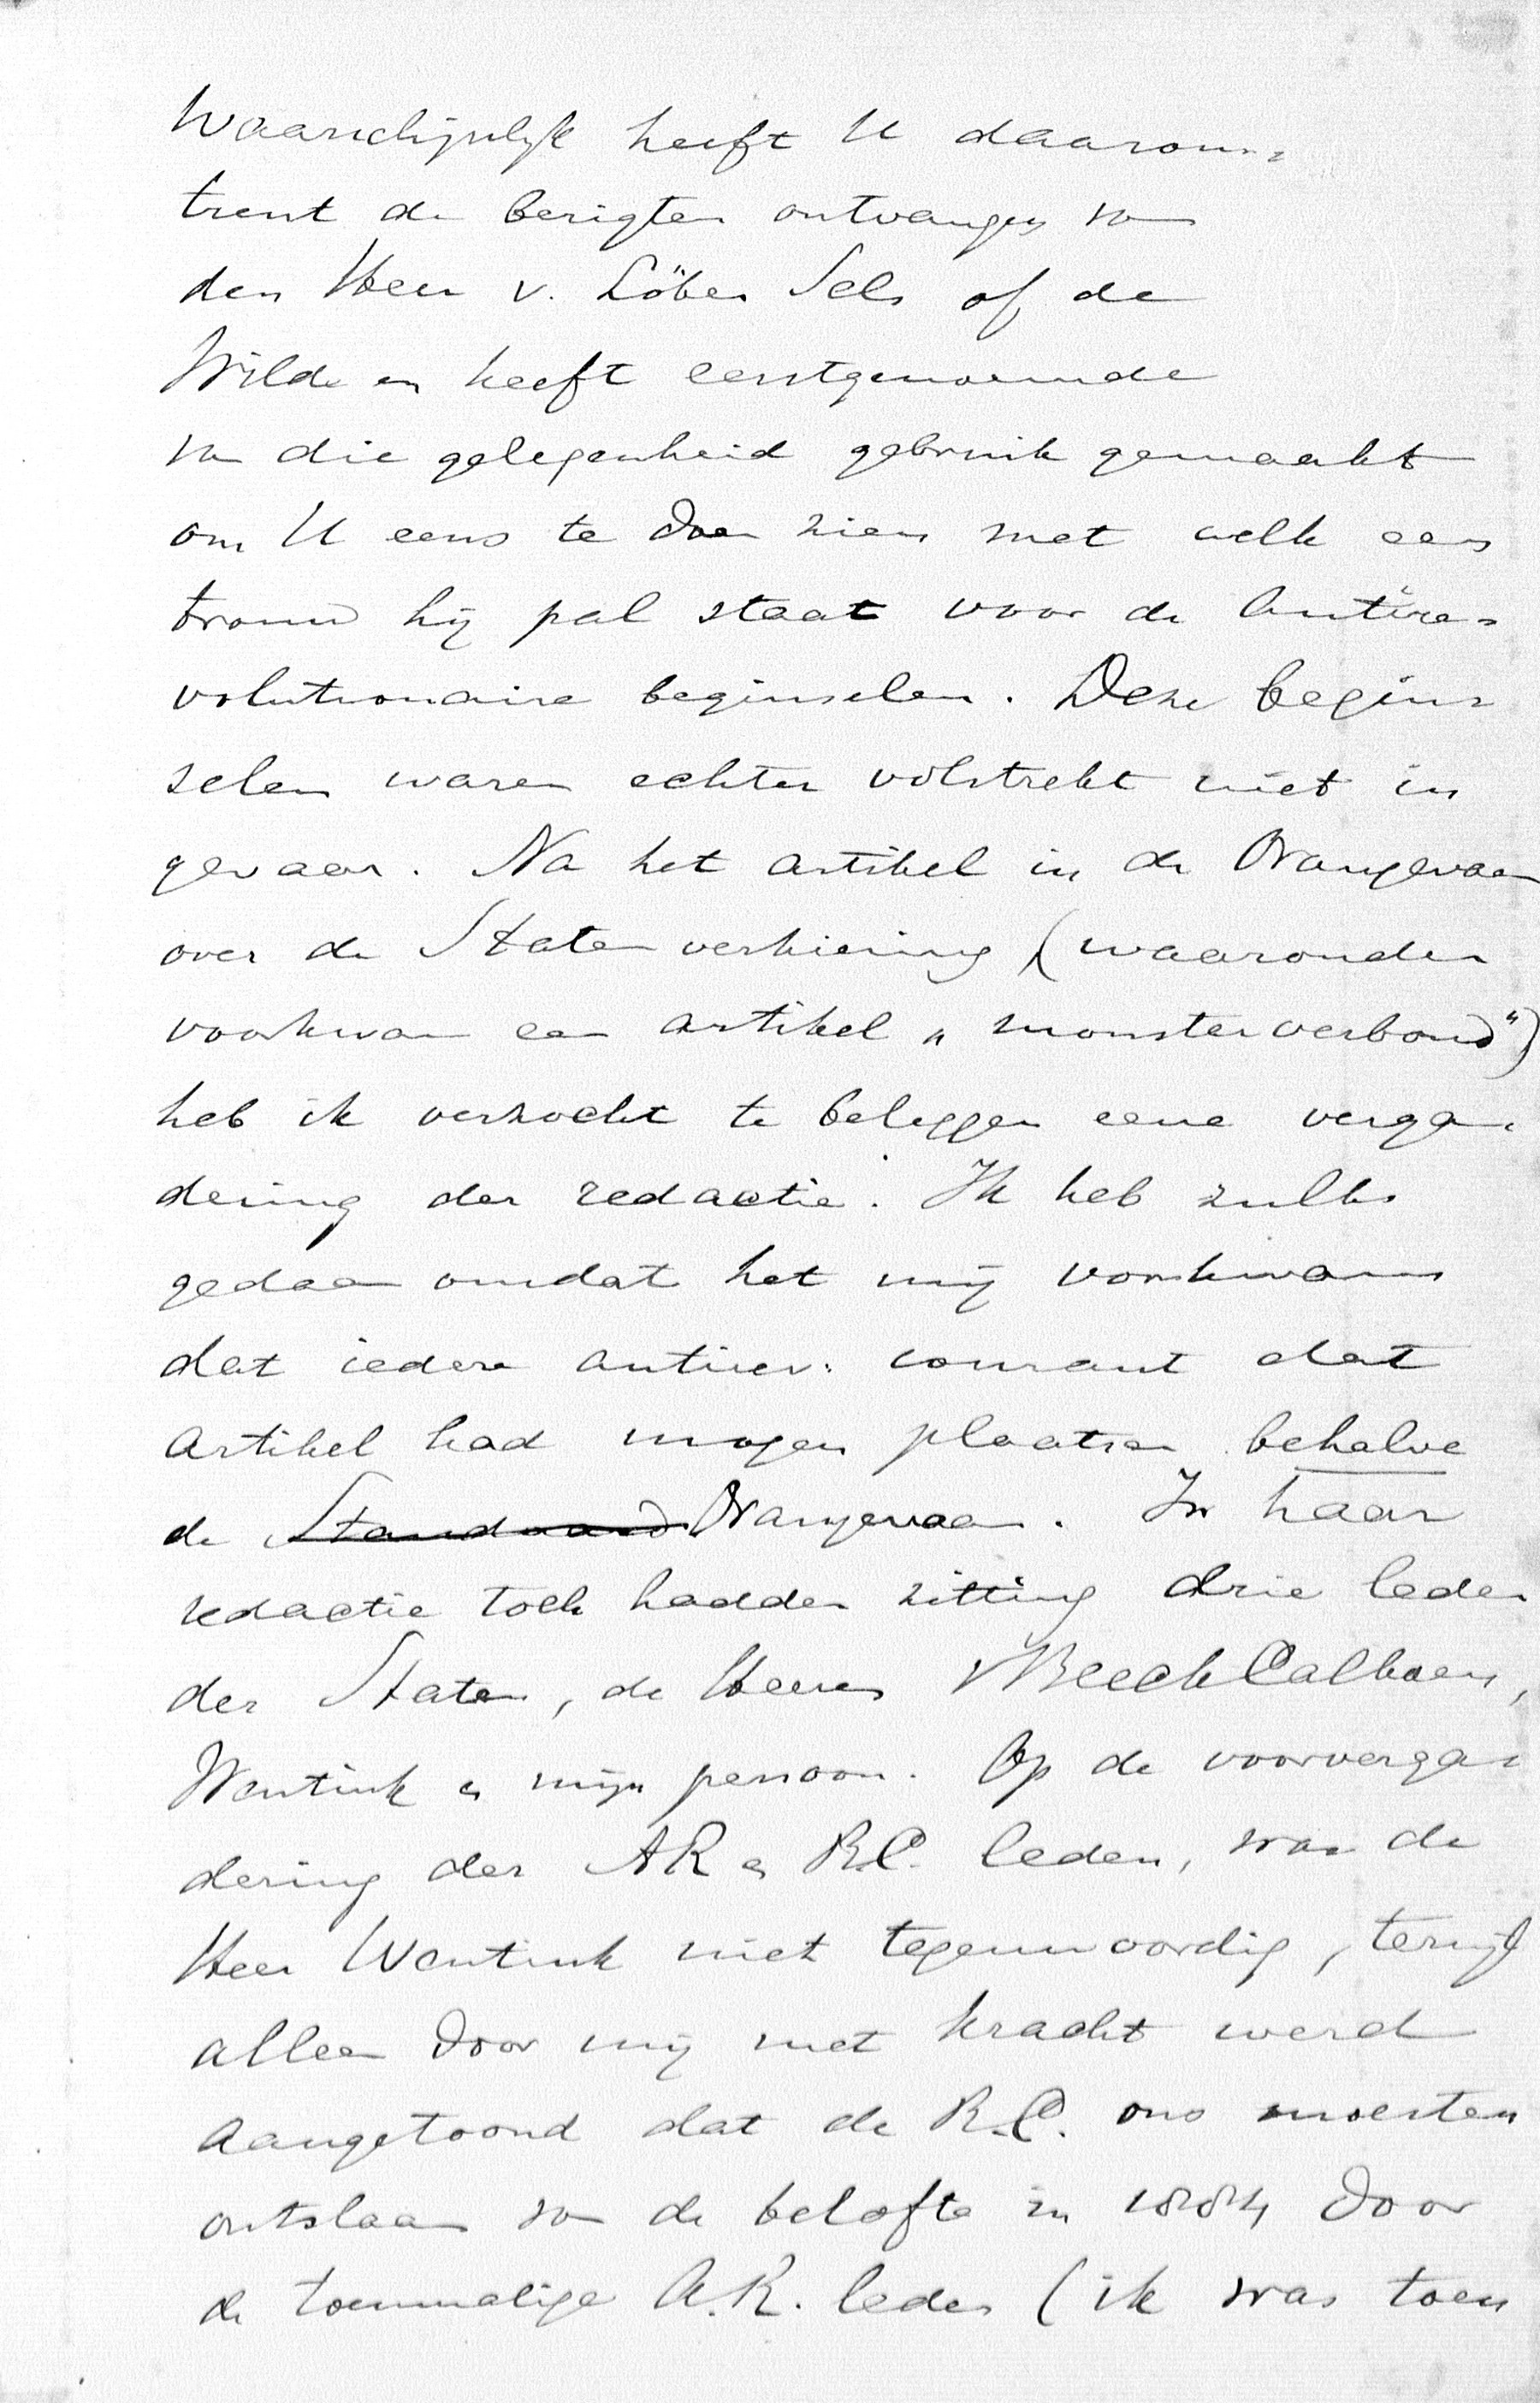 Waarschijnlijk heeft U daarom=
trent de berigten ontvangen van
den Heer v. Löben Sels of de
Wilde en heeft eerstgenoemde
van die gelegenheid gebruik gemaakt
om U eens te doen zien met welk een
trouw hij pal staat voor de Antire=
volutionaire beginselen. Deze begin=
selen waren echter volstrekt niet in
gevaar. Na het artikel in de Oranjevaan
over de Statenverkiezing (waaronder
voorkwam een artikel „monsterverbond")
heb ik verzocht te beleggen eene verga=
dering der redactie. Ik heb zulks
gedaan omdat het mij voorkwam
dat iedere antirev. courant dat
artikel had mogen plaatsen behalve
de Standaard Oranjevaan. In haar
redactie toch hadden zitting drie leden
der Staten, de Heeren v Beeck Calkoen,
Wentink en mijn persoon. Op de voorverga=
dering der AR en R.C. leden, was de
Heer Wentink niet tegenwoordig, terwijl
alleen door mij met kracht werd
aangetoond dat de R.C. ons moesten
ontslaan van de belofte in 1884 door
de toenmalige A.R. leden (ik was toen